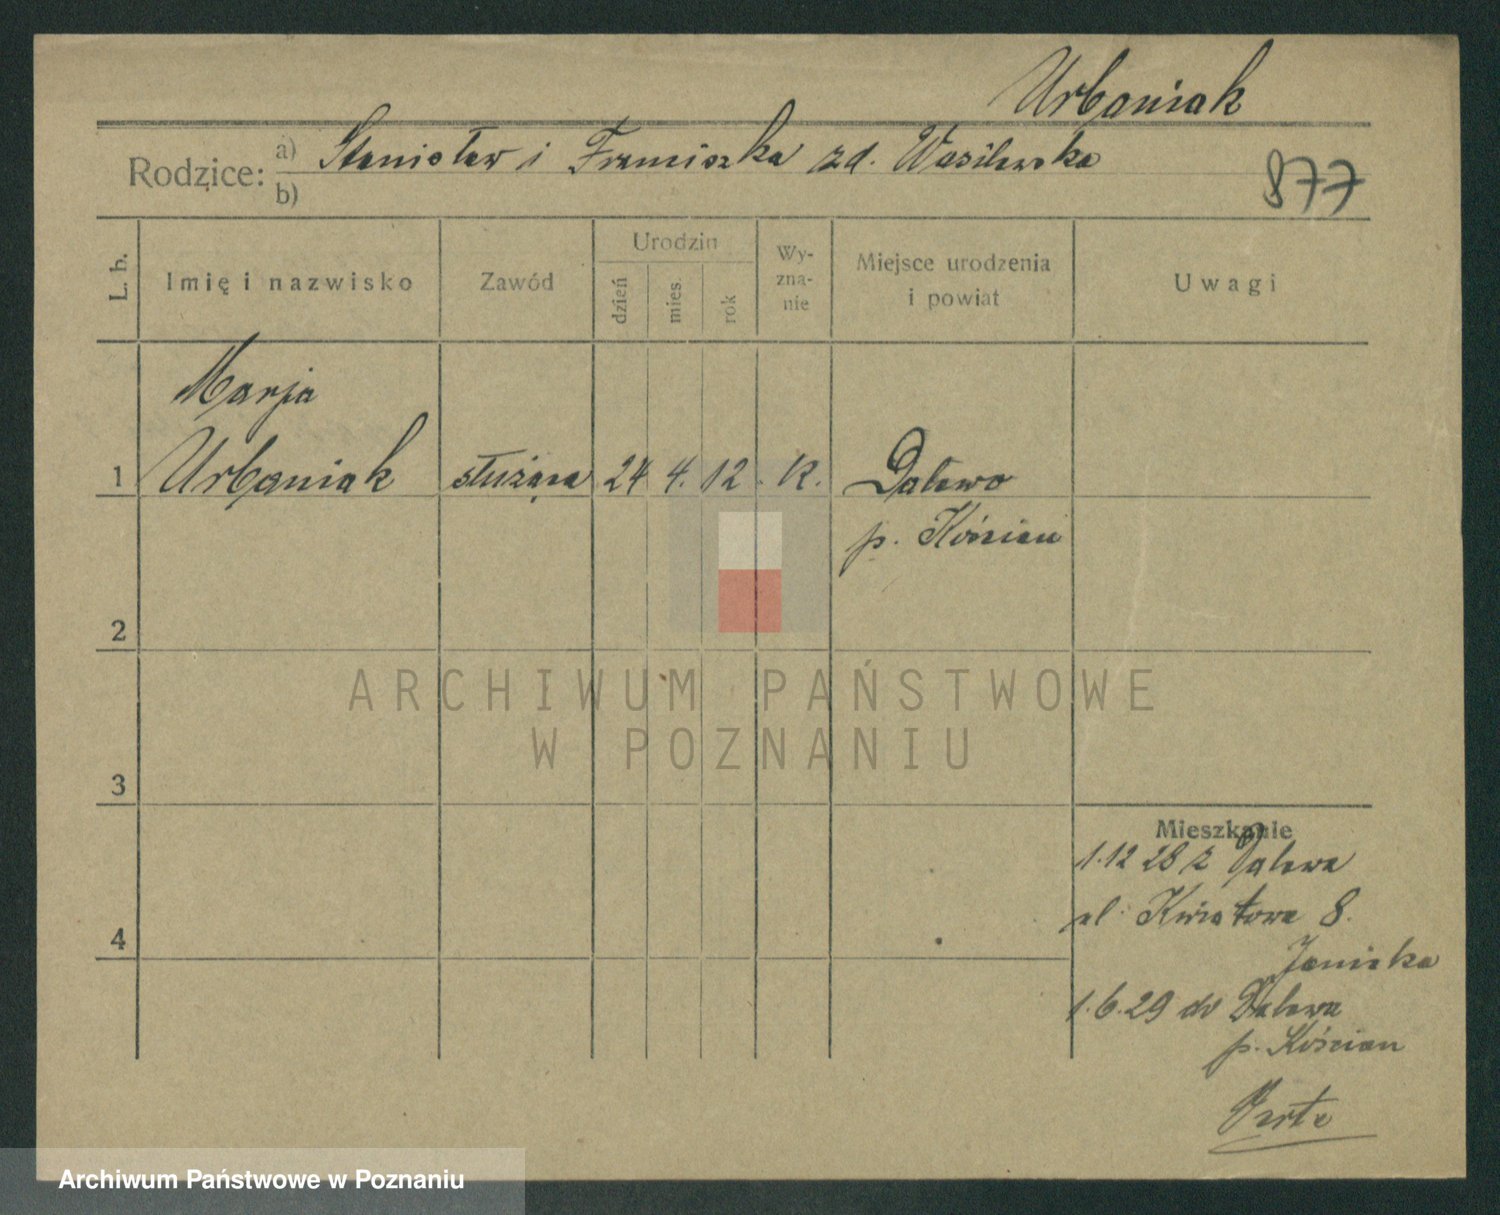 Urbaniak
Rodzice: a) Stanisław i Franciszka zd. Wasilewska
b)
877
L. b.
Imię i nazwisko
Zawód
Urodzin
dzień
mies.
rok
Wy-
zna-
nie
Miejsce urodzenia
i powiat
Uwagi
Marja
1 Urbaniak służąca 24 4. 12. K. Dalewo
p. Kościan
2
ARCHIWUM PAŃSTWOWE
W POZNANIU
3
Mieszkanie
1.12 28 z Dalewa
ul. Kwiatowa 8.
4
1.6.29 do Dalewa
p. Kościan
Archiwum Państwowe w Poznaniu